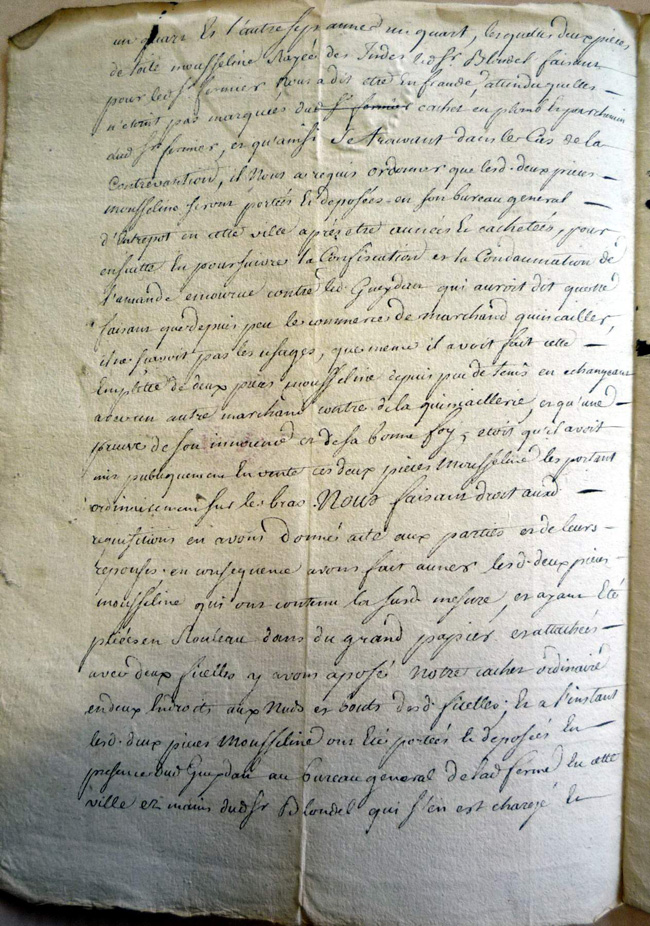 un quart Et l'autre sept aunes un quart, lesquelles deux pieces
de toile mousseline Rayée des Indes led. Sr Blondel faisant
pour led. Sr fermier Nous a dit etre En fraude, attendu quelles —
n'etant pas marquées du cachet en plomb Et parchemin
dud Sr fermier, et qu'ainsi Se trouvant dans le Cas de la
Contrevantion, il Nous a requis ordonner que lesd. deux pieces —
mousseline seront portées Et deposées en son bureau general —
d'Entrepot en cette ville aprez etre aunées Et cachetées, pour
ensuitte En poursuivre la Confiscation et la Condamnation de
l'amande encourue contre led. Gueydan qui auroit dit que ne
faisant que depuis peu le commerce de marchand quincailler,
il ne scavoit pas les usages, que meme il avoit fait cette —
Emplette de deux pieces mousseline depuis peu de tems en echangeant
avec un autre marchand contre de la quincaillerie, et qu'une —
preuve de son innocence et de sa bonne foy, etoit qu'il avoit
mis publiquement En vente ces deux pieces Mousseline les portant
ordinairement sur les bras. Nous faisant droit auxd —
requisitions en avons donné acte aux parties et de leurs
reponses. en consequence avons fait auner lesd. deux pieces —
mousseline qui ont contenu la susd. mesure, et ayant Eté
pliées en Rouleau dans du grand papier et attachées —
avec deux ficelles y avons aposé Notre cachet ordinaire
en deux Endroits aux Nuds et bouts desd. ficelles; Et a l'instant
lesd. deux pieces Mousseline ont Eté portées Et deposées En
presence dud Gueydan au bureau general de lad ferme En cette
ville ez mains dud. Sr Blondel qui s'en est chargé Et